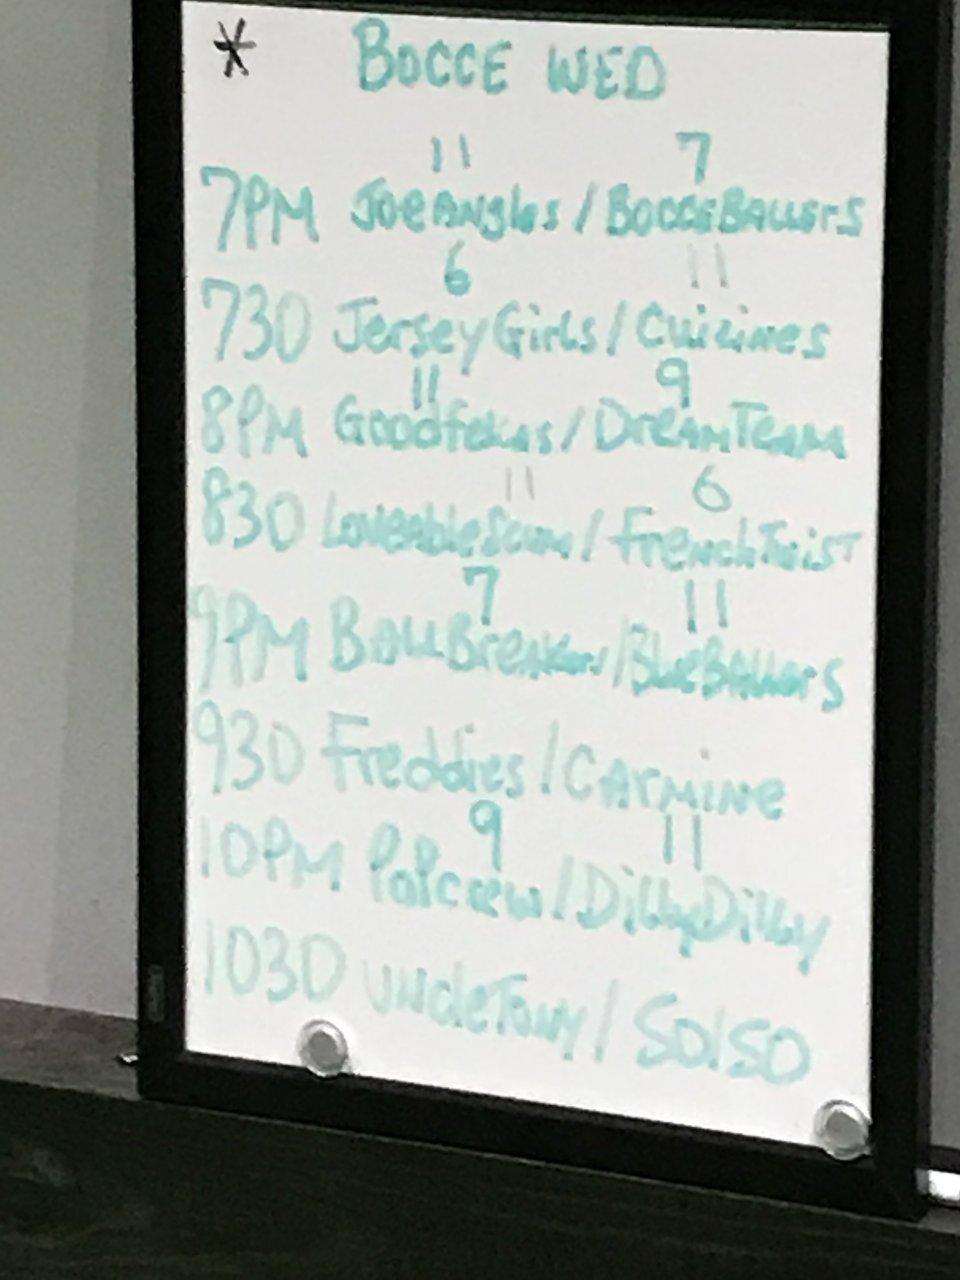 * BOCCE WED
11 7
7PM JoeAngles / BOCCEBALLerS
6 11
730 JerseyGirls / Cuizines
11 9
8PM Goodfellas / DreamTeam
11 6
830 LoveableScum / FrenchTwist
7 11
9PM BallBreakers / BlueBallerS
930 Freddies / CArmine
9 11
10PM PoPcrew / DillyDilly
1030 UncleTony / SO/SO